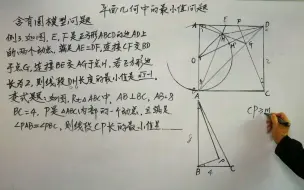 平面几何中的最小值问题
含有圆模型问题
例3.如图,E、F是正方形ABCD的边AD上
的两个动点,满足AE=DF,连接CF交BD
于点G,连接BE交AG于点H,若正方形边
长为2,则线段DH长度的最小值是√5-1.
变式练习:如图,Rt△ABC中,AB⊥BC,AB=8
BC=4,P是△ABC内部的一个动点,且满足
∠PAB=∠PBC,则线段CP长的最小值是
A
E
F
D
G
H
2
B
C
A
P
B
4
C
CP≥